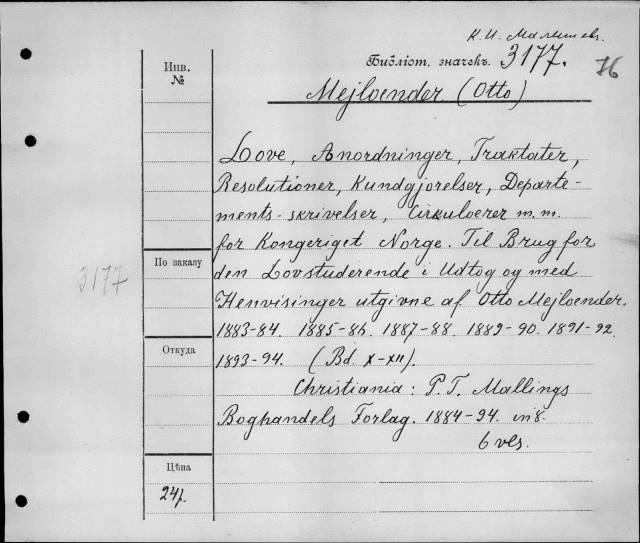 К. И. Малышев.
Библіот. значекъ. 3177.
Инв.
№
Mejloender. (Otto)
Love, Anordninger, Traktater,
Resolutioner, Kundgjorelser, Departe-
ments-skrivelser, Cirkuloerer m. m.
for Kongeriget Norge. Til Brug for
По заказу
3177
den Lovstuderende i Udtog og med
Henvisinger utgivne af Otto Mejloender.
1883-84. 1885-86. 1887-88. 1889-90. 1891-92.
Откуда
1893-94. (Bd. X-XII).
Christiania: P. T. Mallings
Boghandels Forlag. 1884-94. in 8.
6 vls.
Цѣна
24 р.